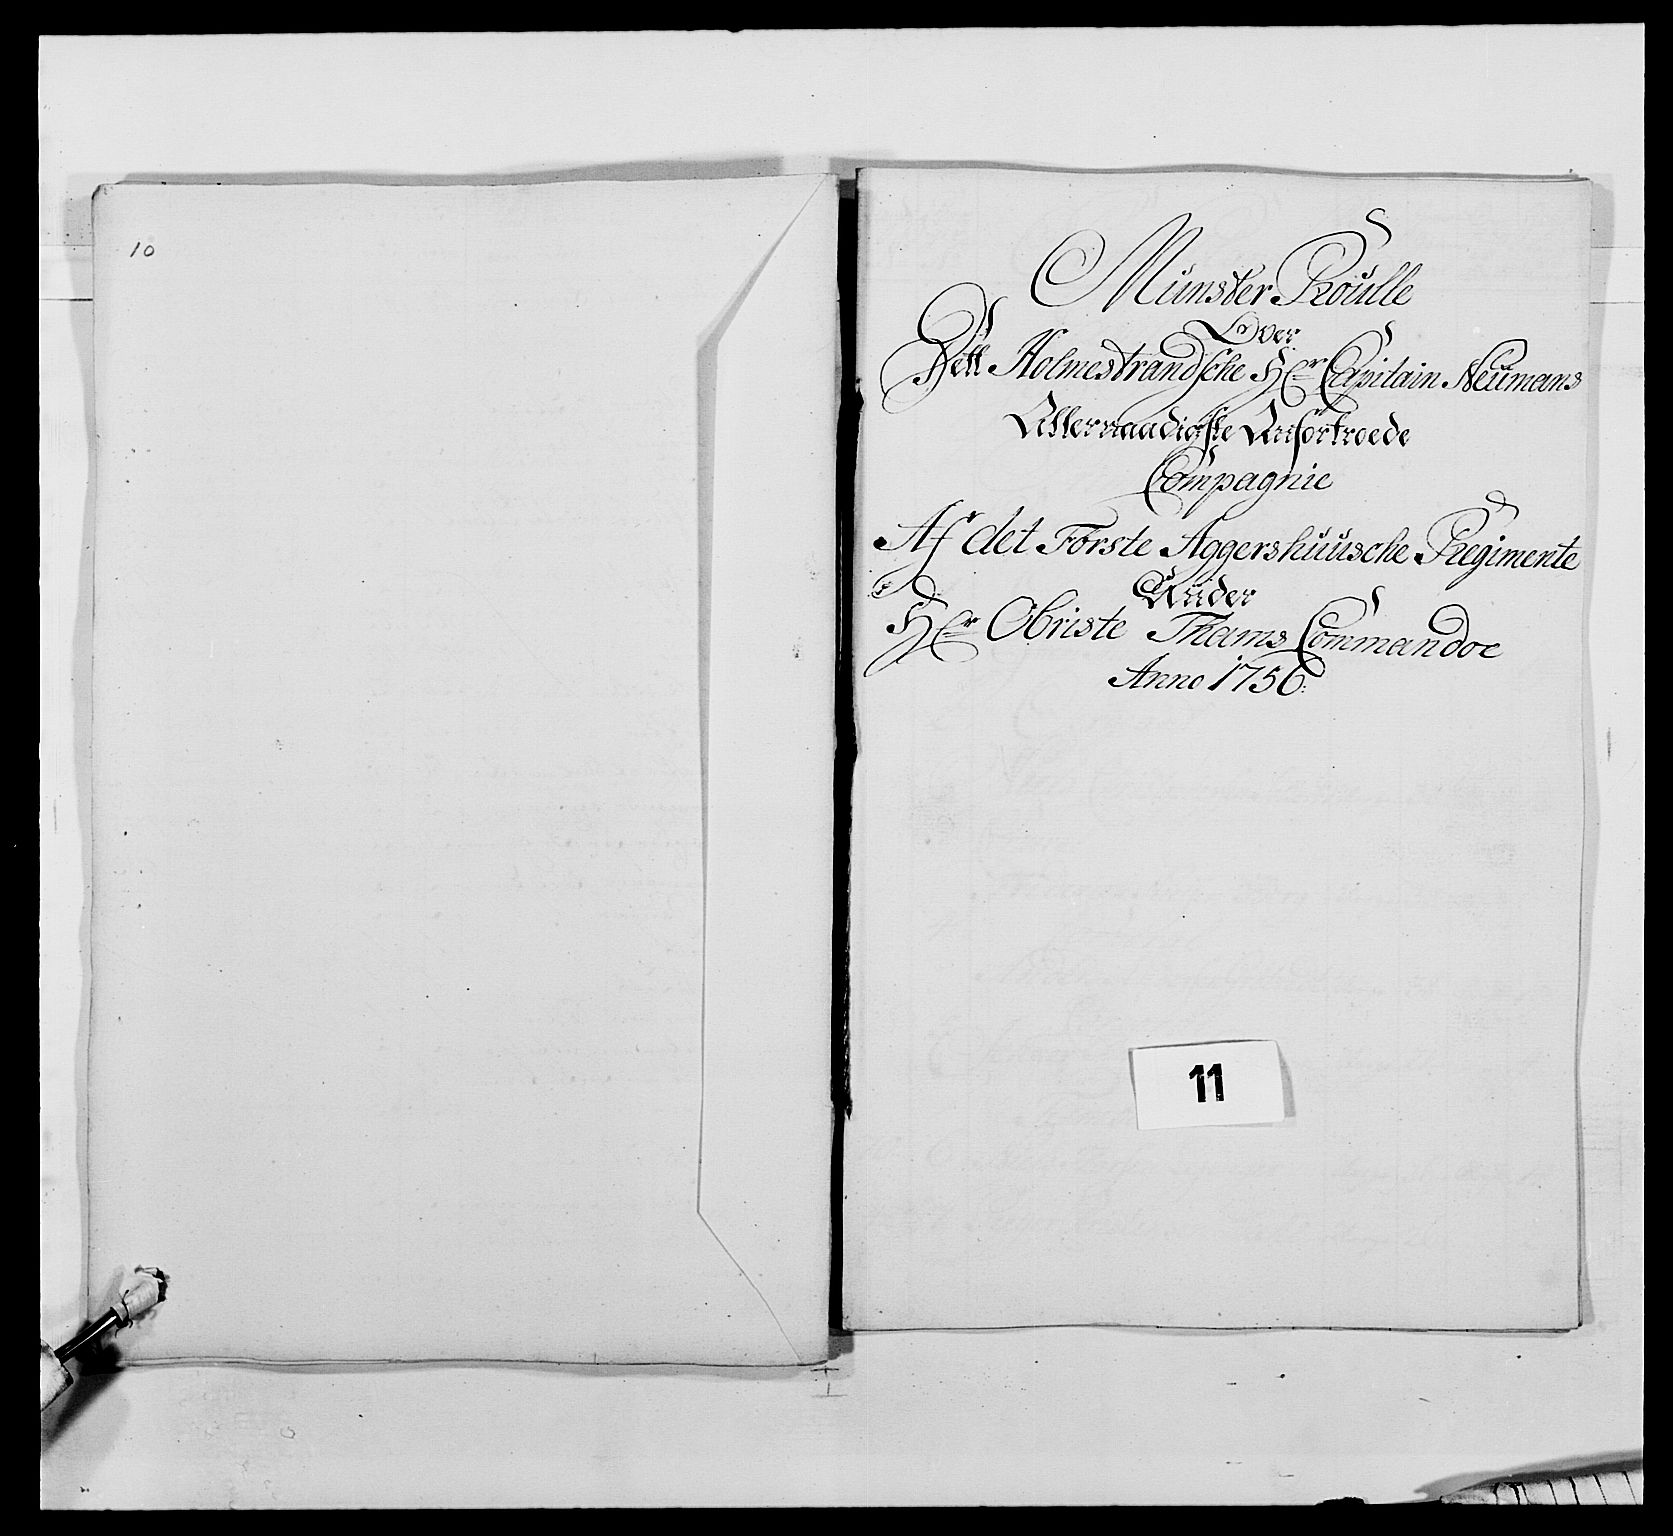 10
Münster Roulle
Over
Dett Holmestrandsche Hr Capitain Neümans
Allernaadigste Anfortroede
Compagnie
Af det Förste Aggershuusche Regimente
Under
Hr Obriste Thams Commandoe
Anno 1756:
11